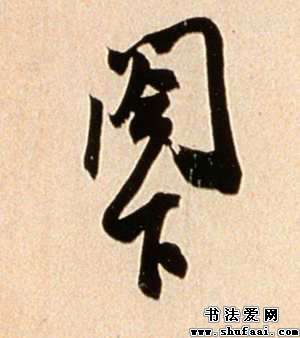 阁下
书法爱网
www.shufaai.com